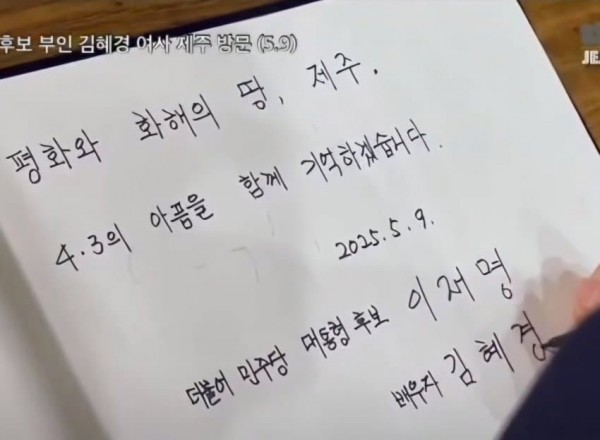 후보 부인 김혜경 여사 제주 방문 (5.9)
JE
평화와 화해의 땅, 제주.
4.3의 아픔을 함께 기억하겠습니다.
2025.5.9.
더불어민주당 대통령 후보 이재명
배우자 김혜경